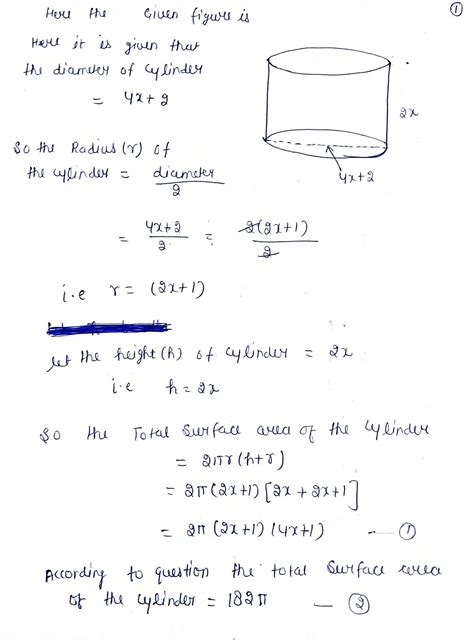 ①
Here the Given figure is
Here it is given that
the diameter of Cylinder
= 4x+2
2x
4x+2
So the Radius (r) of
the cylinder = diameter / 2
= 4x+2 / 2 = 2(2x+1) / 2
i.e r = (2x+1)
let the height (h) of cylinder = 2x
i.e h = 2x
So the Total Surface area of the Cylinder
= 2πr(h+r)
= 2π(2x+1)[2x+2x+1]
= 2π(2x+1)(4x+1) — ①
According to question the total Surface area
of the cylinder = 182π — ②